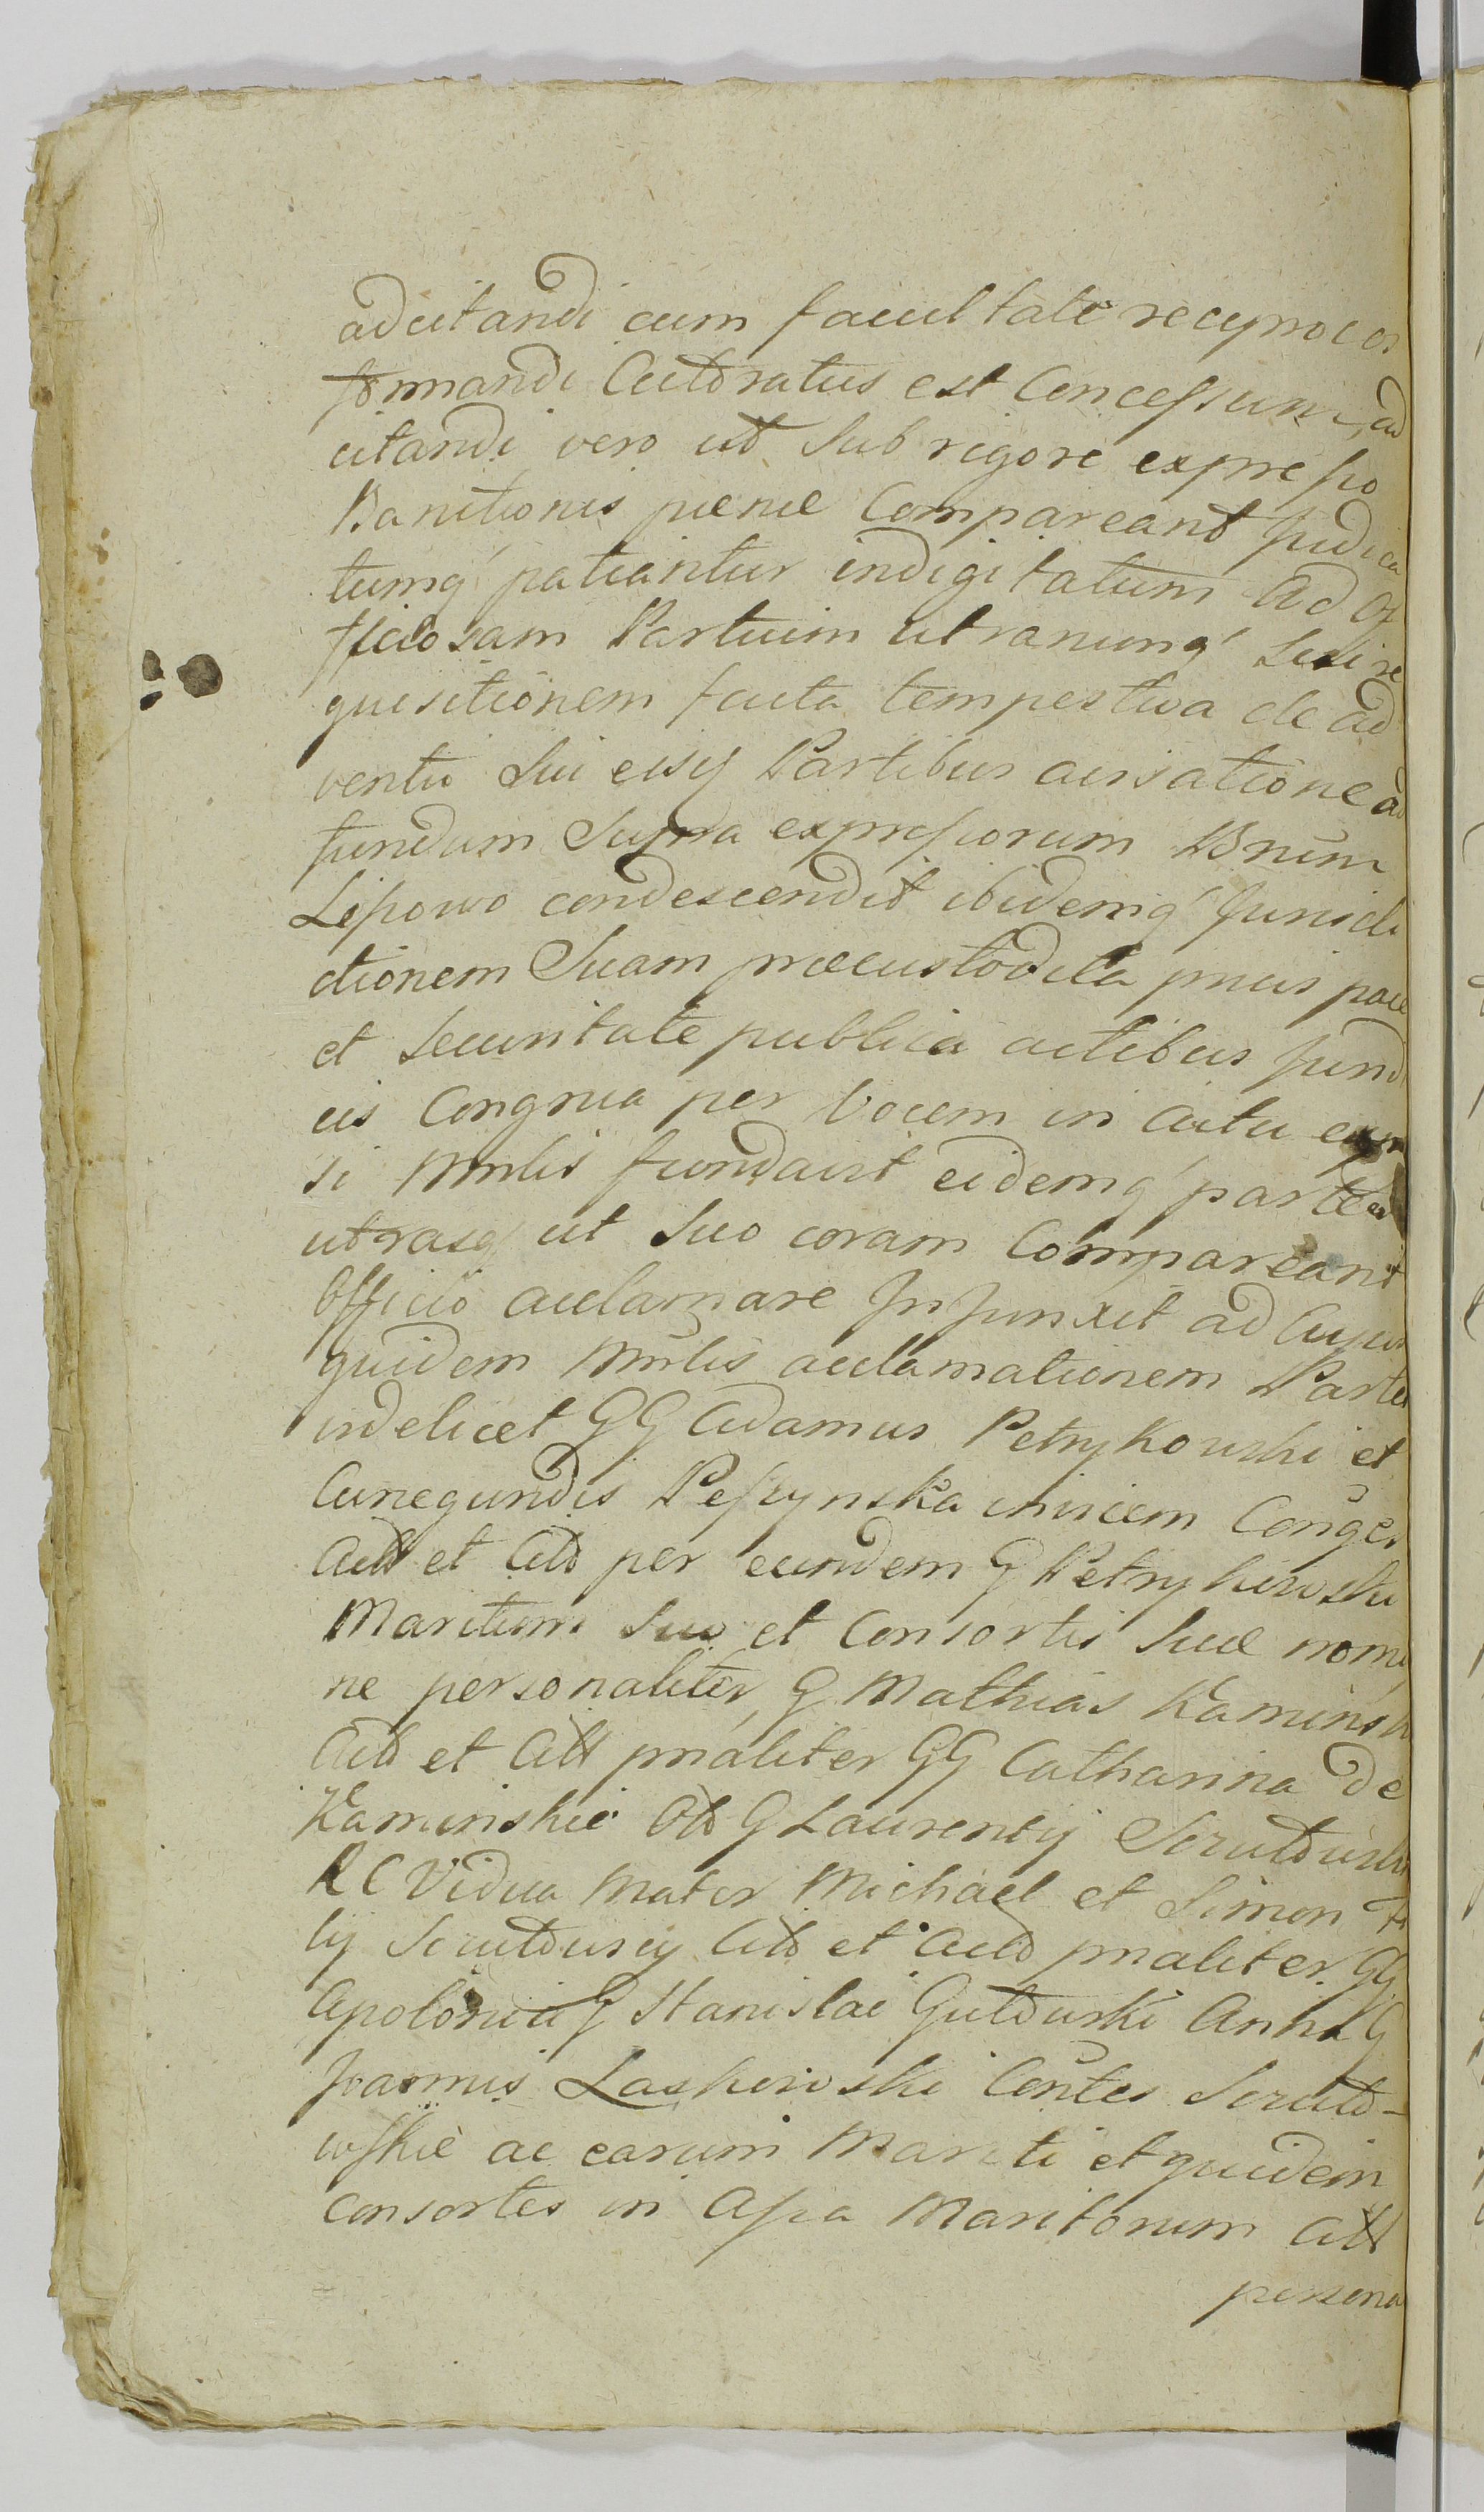 adcitandi cum facultate reciproce
formandi Actoratus est Concessum, ad
citandi vero ut Sub rigore expresso
Banitionis pœnæ Compareant Judica
tumq' patiantur indigitatum Ad Of
ficiosam Partium utranumq' Sui re
quisitionem facta tempestiva de ad
ventu Sui eisq Partibus avisatione ad
fundum Supra expressorum Bnum
Lipowo condescendit ibidemq' Jurisdi
ctionem Suam præcustodita prius pace
et Securitate publica actibus Jurid
cis Congrua per Vocem in Actu expr
si Mnlis fundavit eidemq' partes
utrasq ut Suo coram Compareant
Officio acclamare Injunxit ad Cujus
quidem Mnlis acclamationem Partes
videlicet GG Adamus Petrykowski et
Cunegundis Peszynska invicem Conges
Act et Citt per eundem G Petrykowski
Maritum Suo et Consortis Suæ nomi
ne personaliter, G Mathias Kaminsk
Citt et Act pnaliter GG Catharina de
Kaminskie Olt G Laurentij
RC Vidua Mater Michael et Simon Fi
lij Citt et Act pnaliter GG
Apolonia G Stanislai Anna G
Joannis Laskowski Contes
wskie ac earum Mariti et quidem
Consortes in Assa Maritorum Act
persona